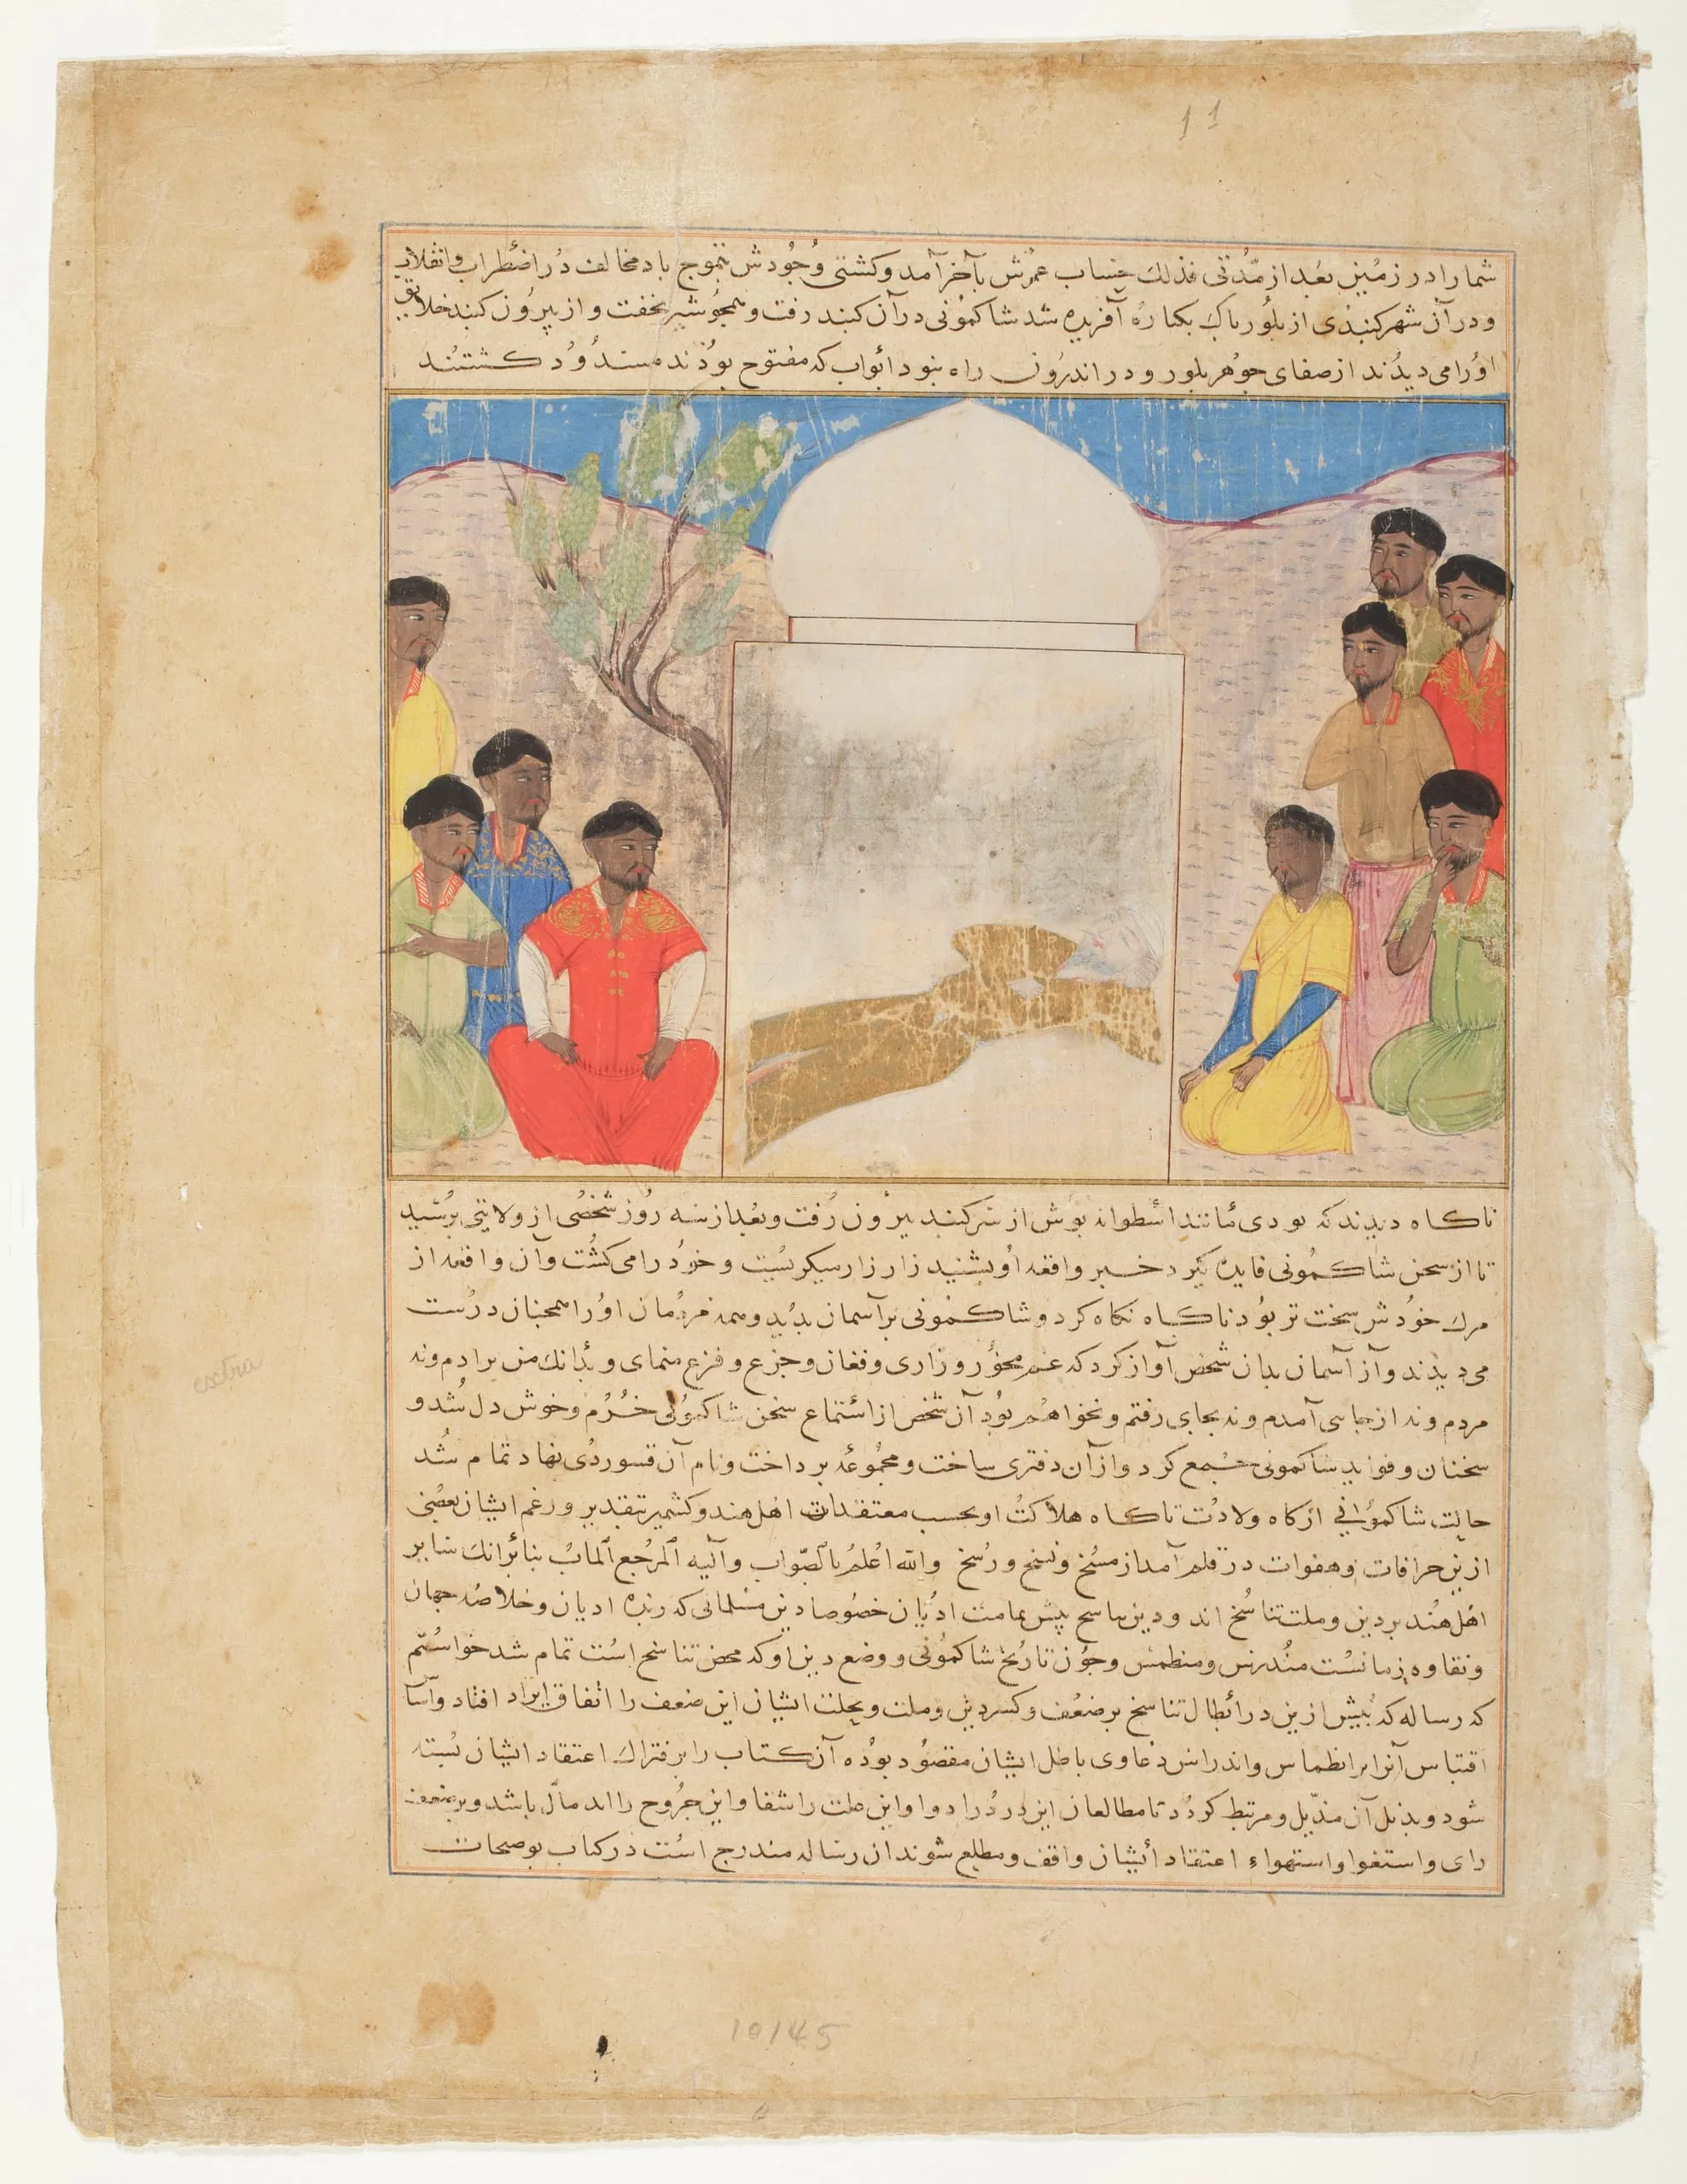 11
شما را در زمین بعد از مدّتی فذلك حساب عمرش بآخر آمد و کشتی وجودش بتموج باد مخالف در اضطراب و انقلاب
و در آن شهر کنبدی از بلور پاك بکباره آفریده شد شاکمونی در آن کنبد رفت و همجو شیر بخفت و از بیرون کنبد خلایق
او را می دیدند از صفای جوهر بلور و در اندرون راه نبود ابواب که مفتوح بوذند مسدود کشتند
ناکاه دیدند که نو دی مانند اسطوانه نوش از سر کنبد بیرون رفت و بعد از سه روز شخصی از ولایتی برسید
تا از سخن شاکمونی فایده کیرد خبر واقعه او بشنید زار زار میکریست و خود را می کشت و آن واقعه از
مرك خودش سخت تر بود ناکاه نکاه کرد و شاکمونی بر آسمان بدید و همه مردمان او را همجنان درست
می دیدند و از آسمان بدان شخص آواز کرد که غم مخور و زاری و فغان و جزع و فزع منمای و بدانك من نزادم و نه
مردم و نه از جایی آمدم و نه بجای رفتم و نخواهم بود آن شخص از استماع سخن شاکمونی خرم و خوش دل شد و
سخنان و فواید شاکمونی جمع کرد و از آن دفتری ساخت و مجموعه برداخت و نام آن قسوردی نهاد تمام شد
حالت شاکمونی از کاه ولادت تا کاه هلاکت او بحسب معتقدات اهل هند و کشمیر بتقدیر و زعم ایشان بعضی
ازین خرافات و هفوات در قلم آمد از مسخ و نسخ و رسخ والله اعلم بالصواب والیه المرجع المآب بنا بر انك سایر
اهل هند بر دین و ملت تناسخ اند و دین تناسخ پیش تمامت ادیان خصوصا دین مسلمانی که زبده ادیان و خلاصه جهان
و نقاوه زمانست مندرس و منطمس و جون تاریخ شاکمونی و وضع دین او که محض تناسخ است تمام شد خواستم
که رساله که پیش ازین در ابطال تناسخ بر ضعف و کسر دین و ملت و نحلت ایشان این ضعف را اتفاق ایراد افتاد و
اقتباس آنرا بر انطماس و اندراس دعاوی باطل ایشان مقصود بوده آن کتاب را بر فتراك اعتقاد ایشان بسته
شود و بذیل آن مذیّل و مرتبط کردد تا مطالعان این درد را دوا و این علت را شفا و این جروح را اندمال باشد و بر ضعف
رای و استغوا و استهواء اعتقاد ایشان واقف و مطلع شوند ان رساله مندرج است در کتاب توضیحات
extra
10145